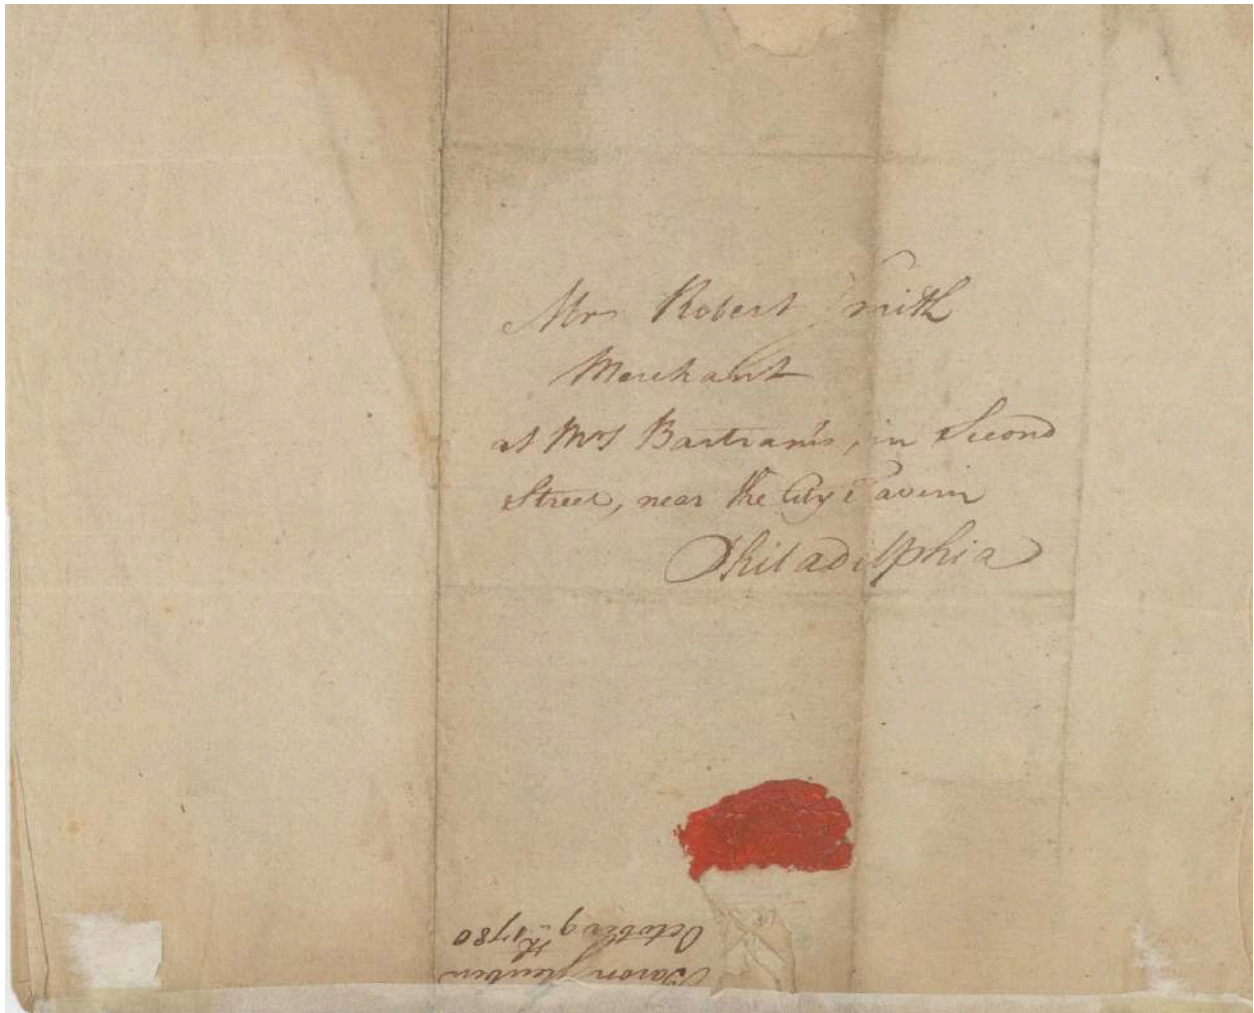 Mr Robert Smith
Merchant
at Mrs Bartram's, in Second
Street, near the City Tavern
Philadelphia
Baron Steuben
October 9th 1780